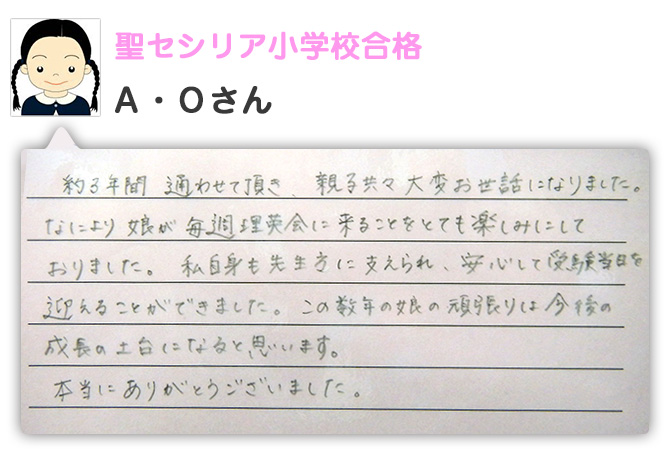 聖セシリア小学校合格
A・Oさん
約3年間 通わせて頂き、親子共々大変お世話になりました。
なにより娘が毎週理英会に来ることをとても楽しみにして
おりました。私自身も先生方に支えられ、安心して受験当日を
迎えることができました。この数年の娘の頑張りは今後の
成長の土台になると思います。
本当にありがとうございました。